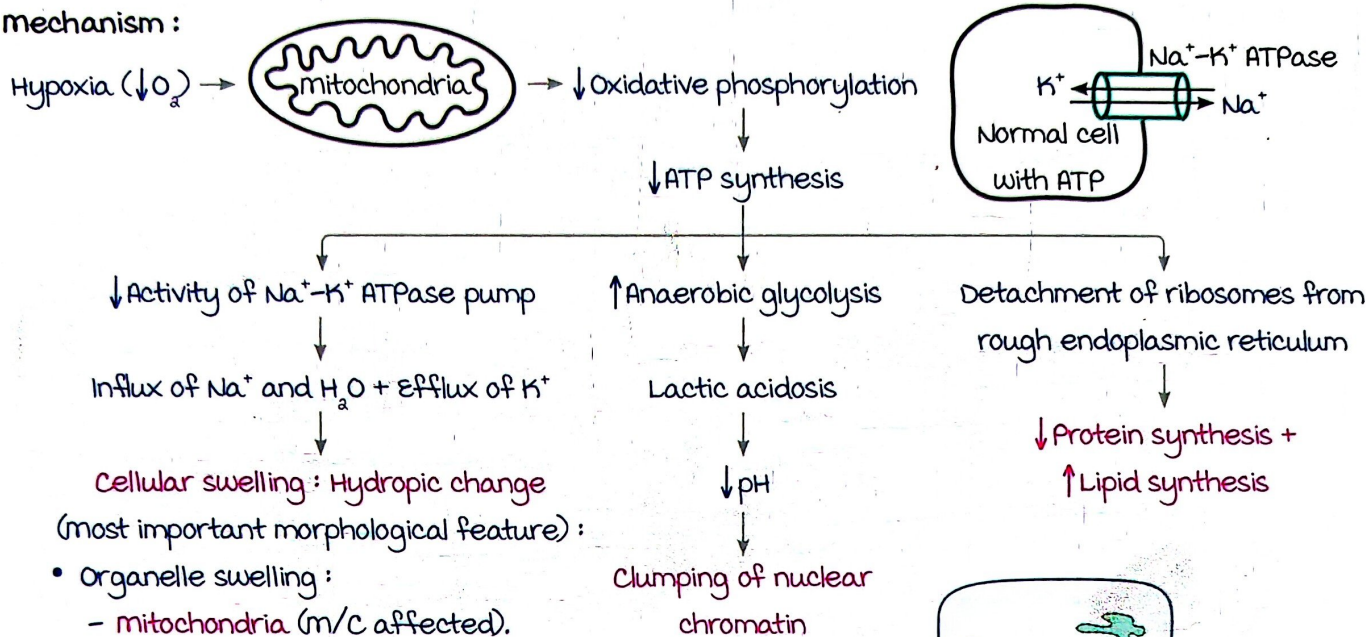 mechanism :
Hypoxia (↓O₂) → mitochondria → ↓Oxidative phosphorylation
↓ATP synthesis
Na⁺-K⁺ ATPase
K⁺
Na⁺
Normal cell
with ATP
↓Activity of Na⁺-K⁺ ATPase pump
Influx of Na⁺ and H₂O + Efflux of K⁺
Cellular swelling : Hydropic change
(most important morphological feature) :
• Organelle swelling :
- mitochondria (m/c affected).
↑Anaerobic glycolysis
Lactic acidosis
↓pH
Clumping of nuclear
chromatin
Detachment of ribosomes from
rough endoplasmic reticulum
↓Protein synthesis +
↑Lipid synthesis